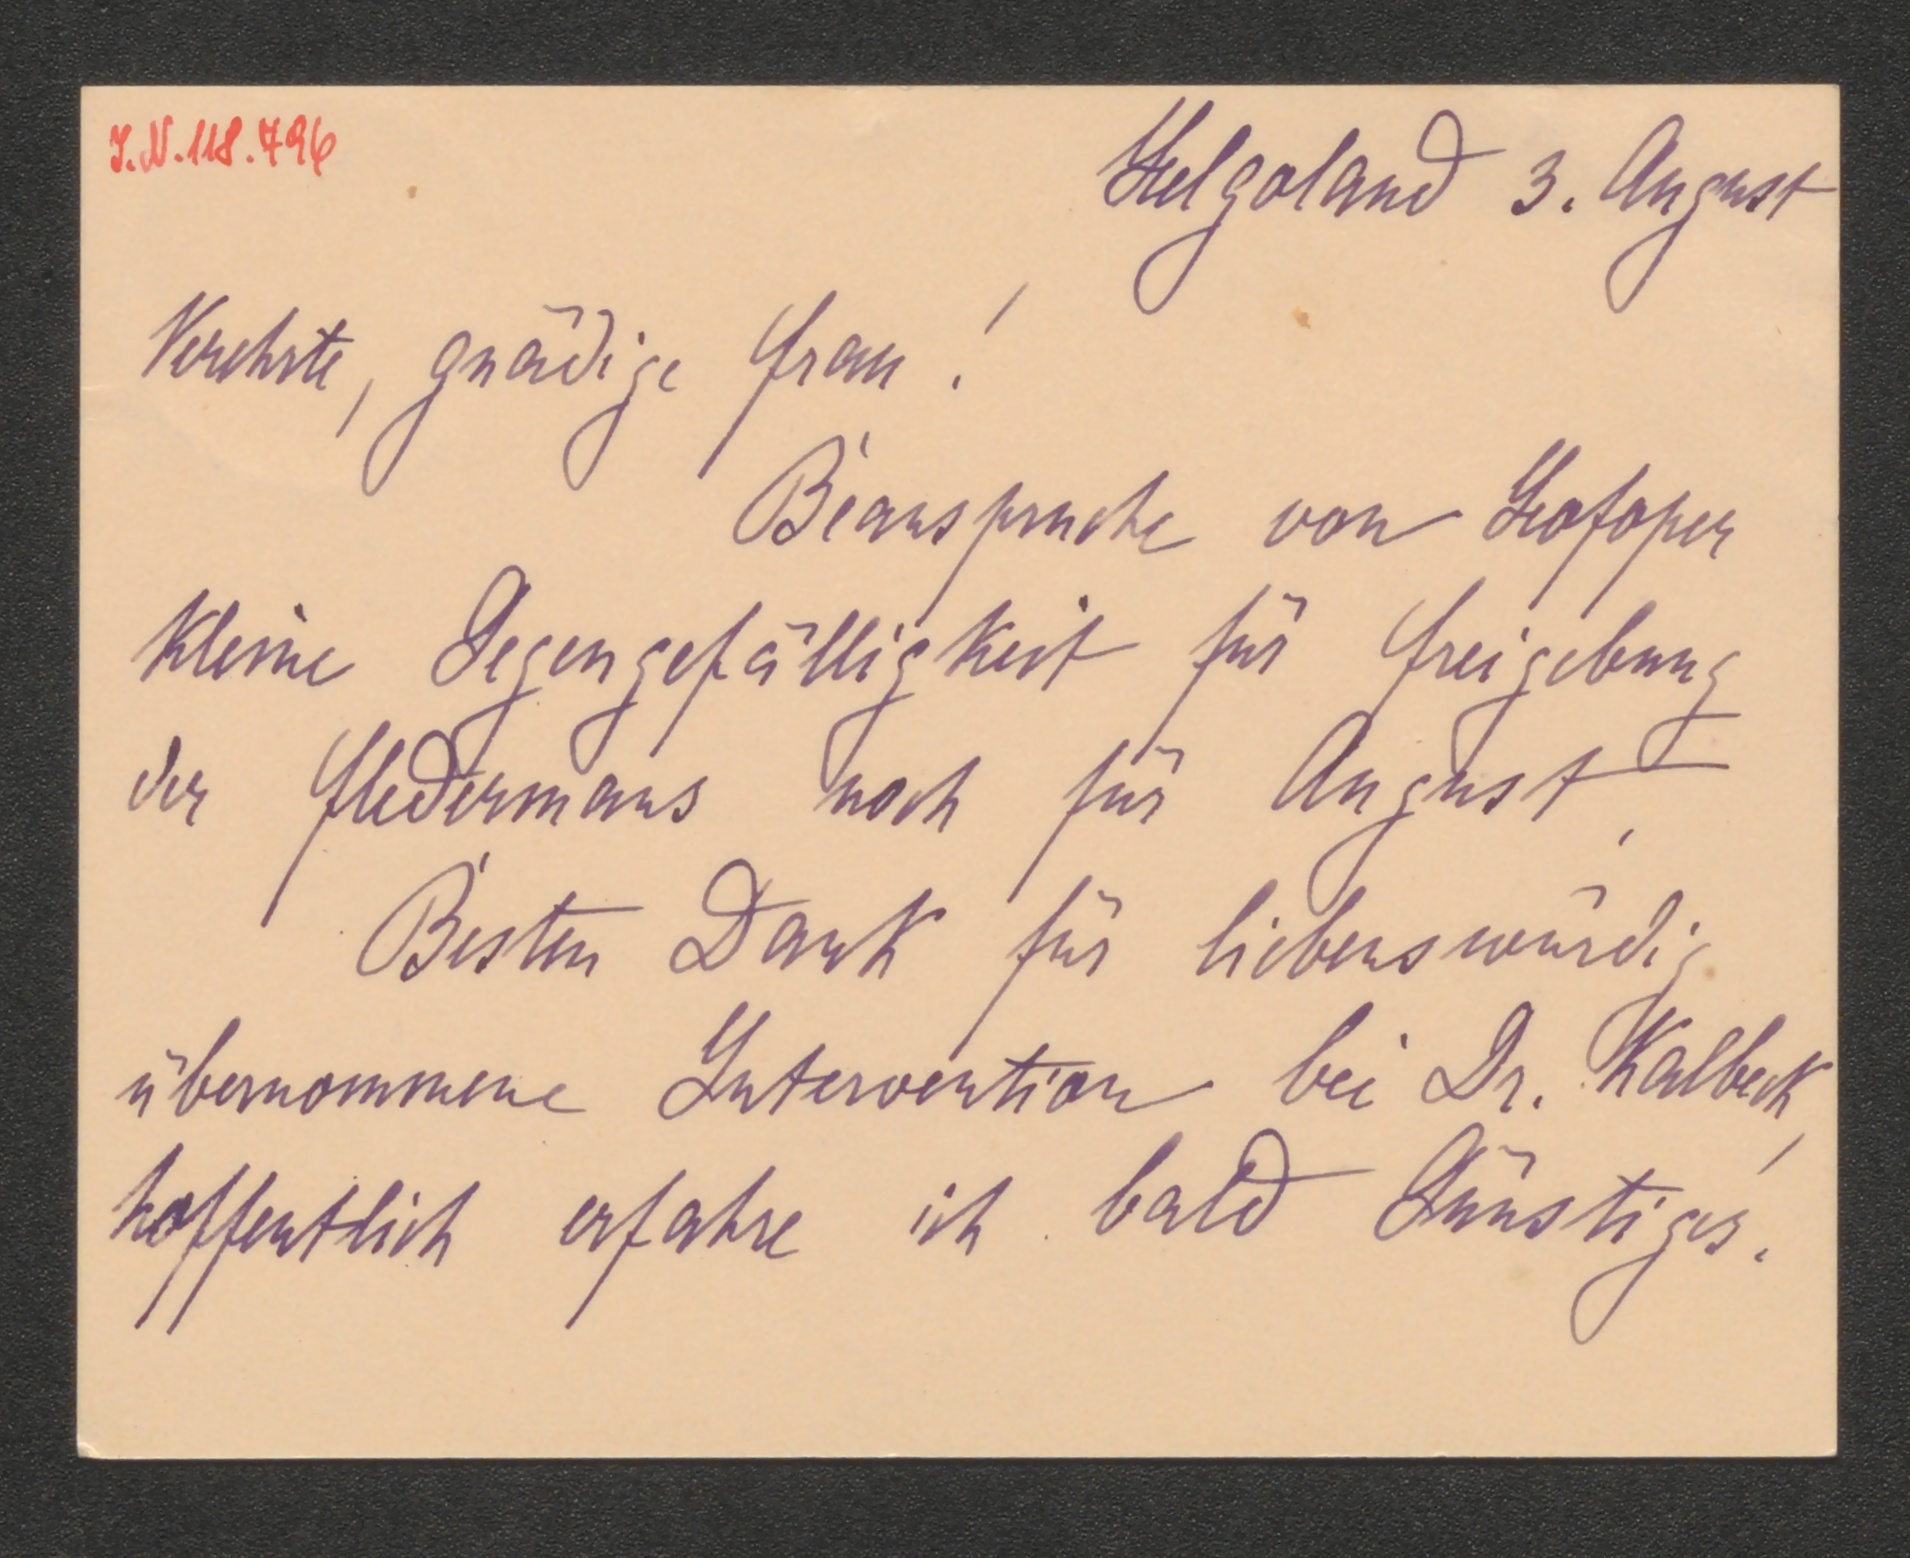 I.N.118.796
Helgoland 3. August
Verehrte, gnädige Frau!
Beanspruche von Hofoper
kleine Gegengefälligkeit für Freigebung
der Fledermaus noch für August.
Besten Dank für liebenswürdig
übernommene Intervention bei Dr. Kalbeck,
hoffentlich erfahre ich bald Günstiges.